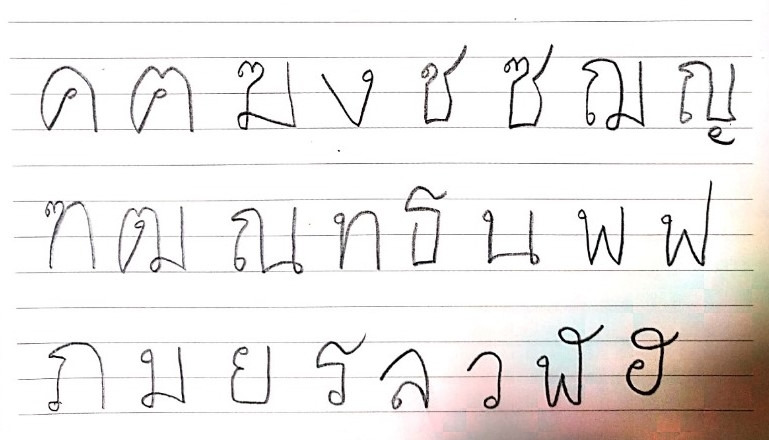 ค ฅ ฆ ง ช ซ ฌ ญ
ฑ ฒ ณ ท ธ น พ ฟ
ภ ม ย ร ล ว ฬ ฮ